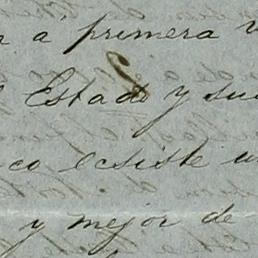 á primera
Estado y su
co ecsiste u
y mejor de